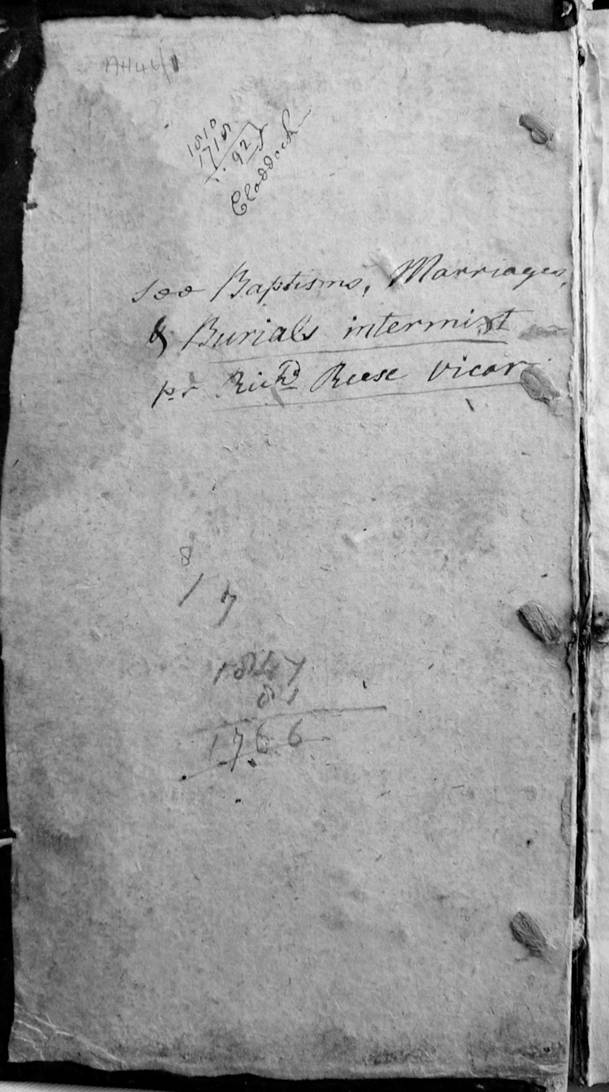 AH46/1
1810
1718
92
Cloddock
see Baptisms, Marriages,
& Burials intermixt
pr Richd Reese Vicar
8
1 7
1847
81
1766